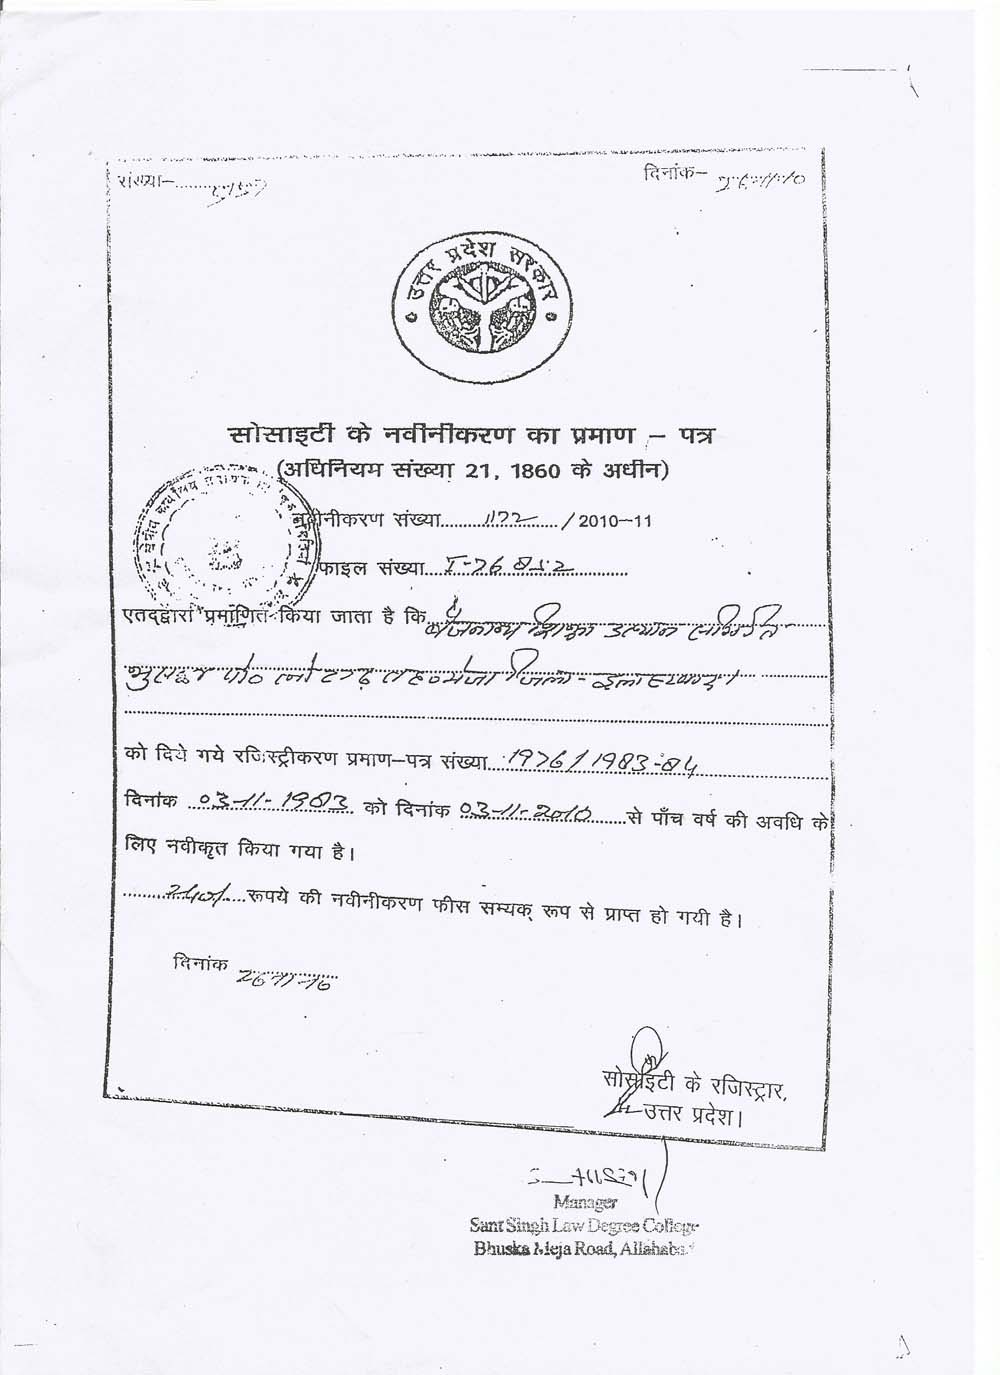 संख्या-
दिनांक-
उत्तर प्रदेश सरकार
सोसाइटी के नवीनीकरण का प्रमाण - पत्र
(अधिनियम संख्या 21, 1860 के अधीन)
नवीनीकरण संख्या......1172....../2010-11
फाइल संख्या...I-26852......
एतद्द्वारा प्रमाणित किया जाता है कि शिक्षा उत्थान समिति
पो० जिला-इलाहाबाद।
को दिये गये रजिस्ट्रीकरण प्रमाण-पत्र संख्या...1976/1983-84
दिनांक ..03-11-1983. को दिनांक 03-11-2010......से पाँच वर्ष की अवधि के
लिए नवीकृत किया गया है।
............240/....रूपये की नवीनीकरण फीस सम्यक् रूप से प्राप्त हो गयी है।
दिनांक
सोसाइटी के रजिस्ट्रार,
उत्तर प्रदेश।
Manager
Sant Singh Law Degree College
Bhuska Meja Road,